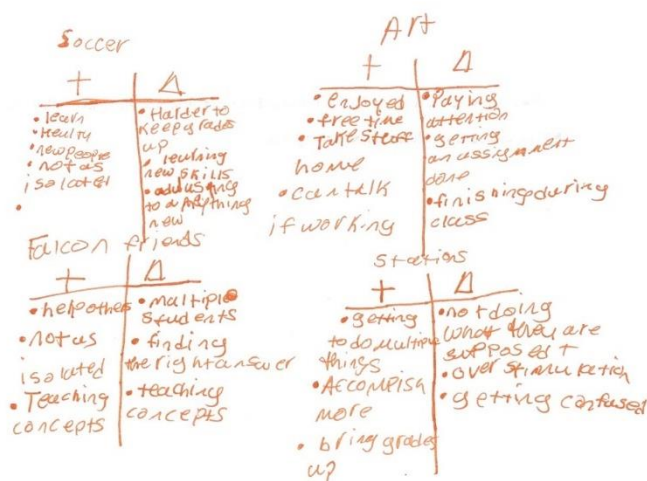 Soccer
+ Δ
• learn
• Healty
• new people
• not as
isolated
•
• Harder to
keep grades
up
• learning
new skills
• adjusting
to anything
new
Art
+ Δ
• enjoyed
• free time
• Take stuff
home
• can talk
if working
• Paying
attention
• getting
an assignment
done
• finishing during
class
Falcon friends
+ Δ
• help others
• not as
isolated
• Teaching
concepts
• multiple
students
• finding
the right answer
• teaching
concepts
Stations
+ Δ
• getting
to do multiple
things
• Accomplish
more
• bring grades
up
• not doing
what they are
supposed t
• over stimulation
• getting confused